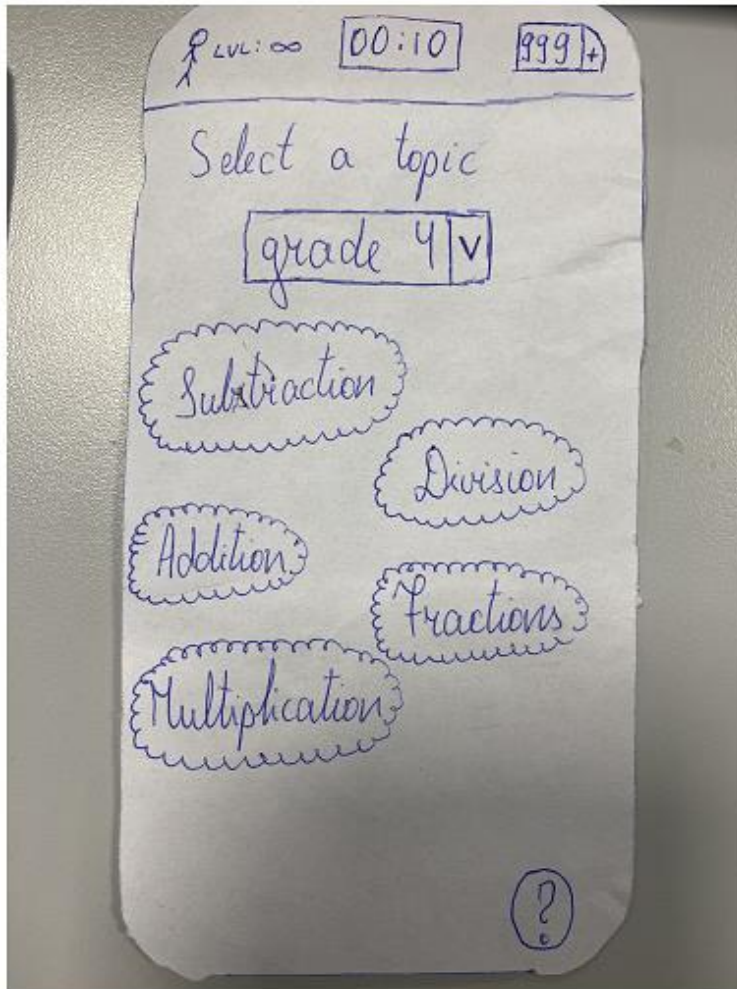 LVL: ∞ 00:10 999 +
Select a topic
grade 4 V
Substraction
Division
Addition
Fractions
Multiplication
?